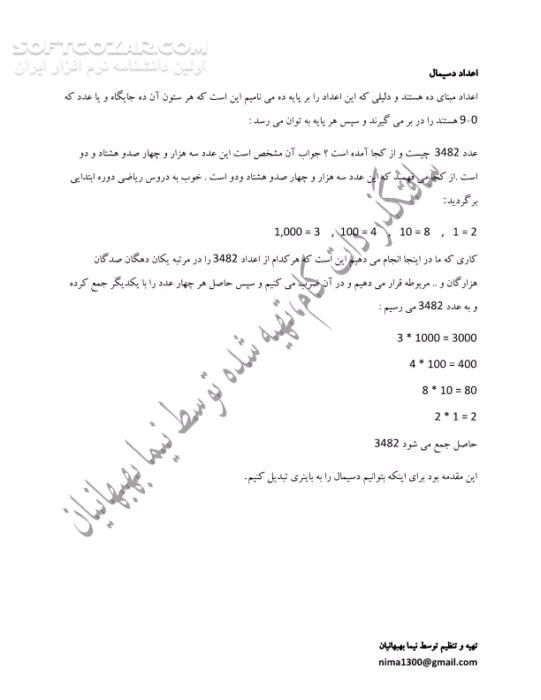 SOFTGOZAR.COM
اولین دانشنامه نرم افزار ایران
اعداد دسیمال
اعداد مبنای ده هستند و دلیلی که این اعداد را بر پایه ده می نامیم این است که هر ستون آن ده جایگاه و یا عدد که
0-9 هستند را در بر می گیرند و سپس هر پایه به توان می رسد :
عدد 3482 چیست و از کجا آمده است ؟ جواب آن مشخص است این عدد سه هزار و چهار صدو هشتاد و دو
است .از کجا می فهمید که این عدد سه هزار و چهار صدو هشتاد ودو است . خوب به دروس ریاضی دوره ابتدایی
برگردید:
1,000 = 3 , 100 = 4 , 10 = 8 , 1 = 2
کاری که ما در اینجا انجام می دهیم این است که هرکدام از اعداد 3482 را در مرتبه یکان دهگان صدگان
هزارگان و .. مربوطه قرار می دهیم و در آن ضرب می کنیم و سپس حاصل هر چهار عدد را با یکدیگر جمع کرده
و به عدد 3482 می رسیم :
3 * 1000 = 3000
4 * 100 = 400
8 * 10 = 80
2 * 1 = 2
حاصل جمع می شود 3482
این مقدمه بود برای اینکه بتوانیم دسیمال را به باینری تبدیل کنیم.
سافتگذر دات کام، تهیه شده توسط نیما بهبهانیان
تهیه و تنظیم توسط نیما بهبهانیان
nima1300@gmail.com